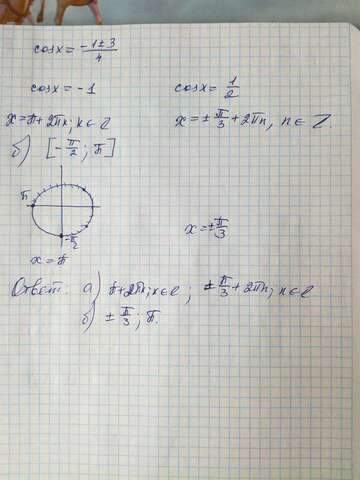 cosx = (-1±3)/4
cosx = -1
cosx = 1/2
x = π + 2πk; k ∈ Z
x = ± π/3 + 2πn, n ∈ Z.
б) [-π/2; π]
π
-π/2
x = π
x = ± π/3
Ответ: а) π + 2πk; k ∈ Z; ± π/3 + 2πn; n ∈ Z
б) ± π/3; π.